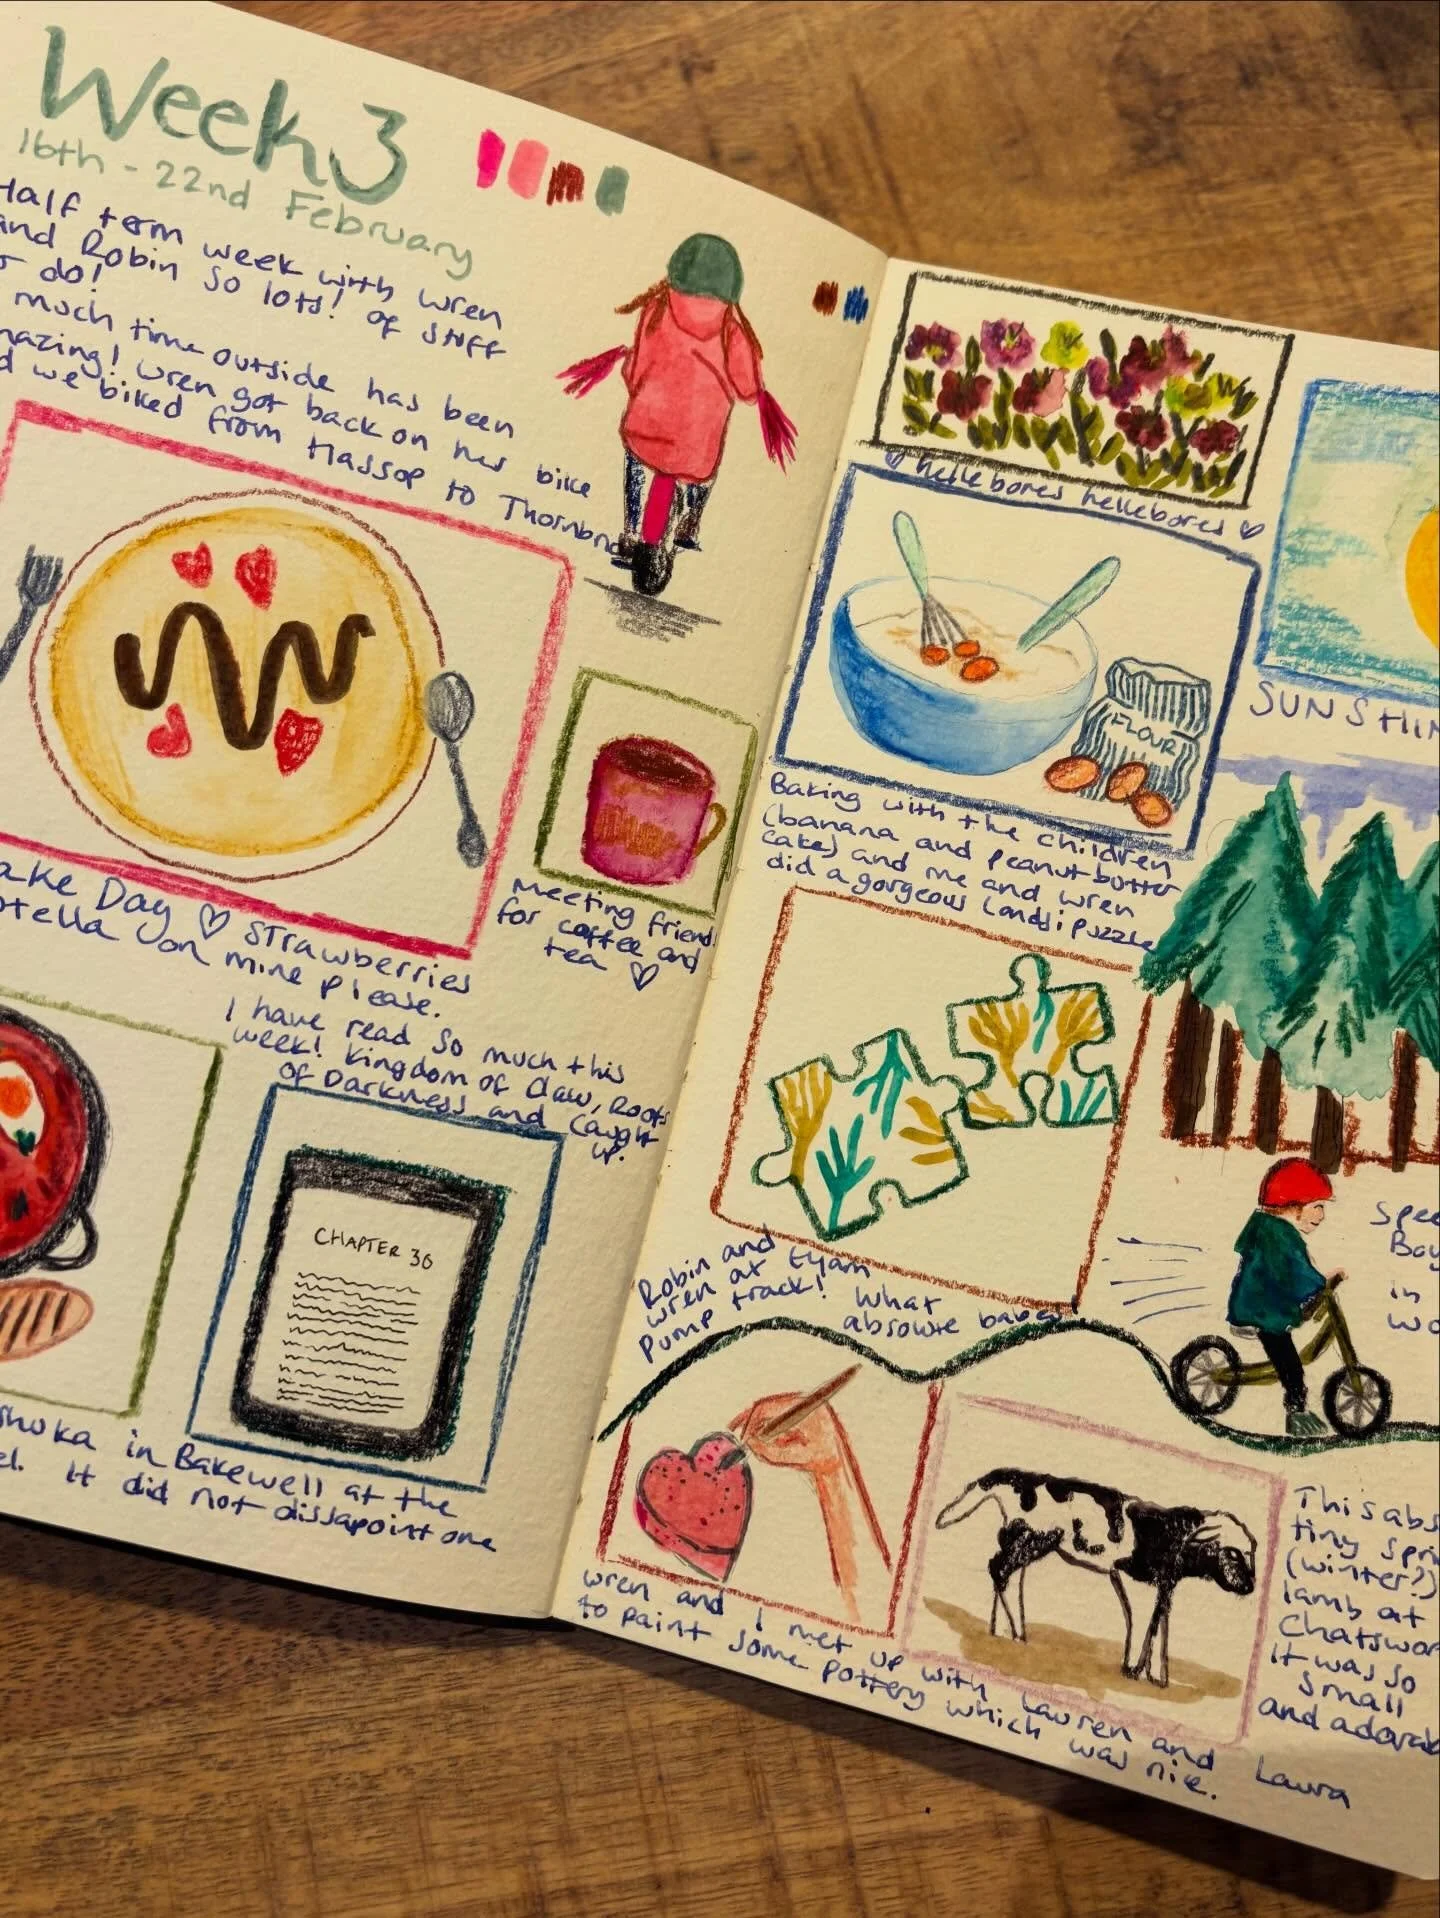 Week 3
16th - 22nd February
Half term week with Wren
and Robin so lots! of stuff
to do!
much time outside has been
amazing! Wren got back on her bike
and we biked from Hassop to Thornb
ake Day ♡ Strawberries
otella on mine please.
Meeting friends
for coffee and
tea ♡
I have read so much this
week! Kingdom of Claw, Roots
of Darkness and Caught
up.
CHAPTER 36
shuka in Bakewell at the
el. It did not dissapoint one
♡ hellebores hellebores ♡
SUNSHIN
FLOUR
Baking with the children
(banana and peanut butter
cake) and me and wren
did a gorgeous Landsi puzzle
Robin and
wren at Eyam
pump track! What
absolute babes!
Spee
Boy
in
wo
wren and I met up with Lauren and Laura
to paint some pottery which was nice.
This abs
tiny spri
(winter?)
lamb at
Chatswor
It was so
small
and adorab